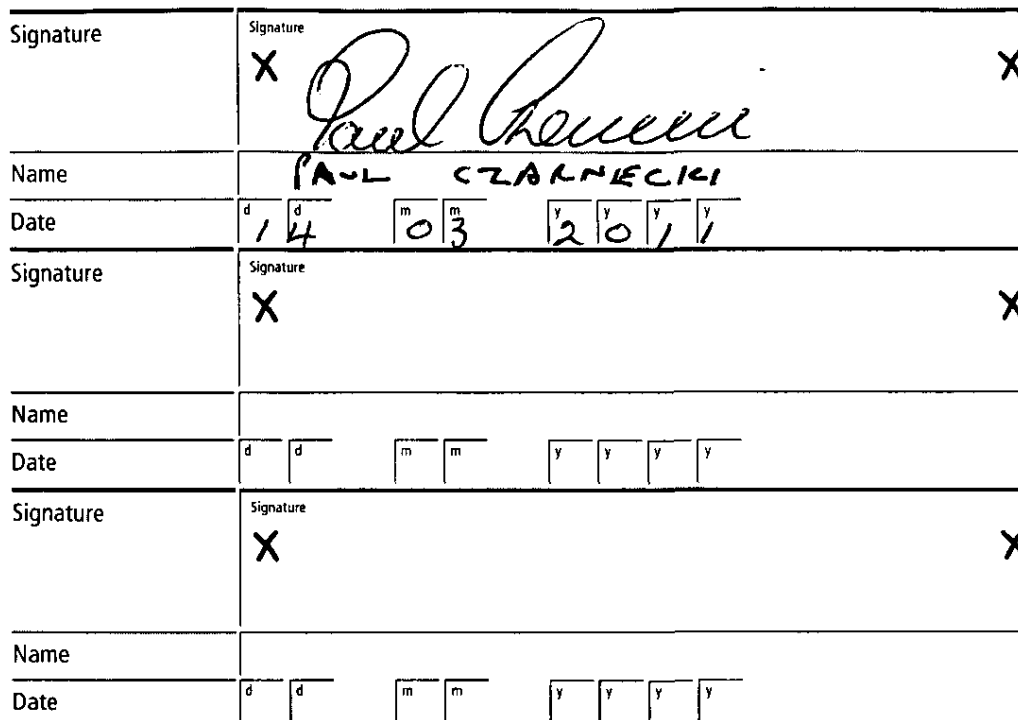 Signature Signature
X X
Paul
Name PAUL CZARNECKI
Date d d m m y y y y
14 03 2011
Signature Signature
X X
Name
Date d d m m y y y y
Signature Signature
X X
Name
Date d d m m y y y y